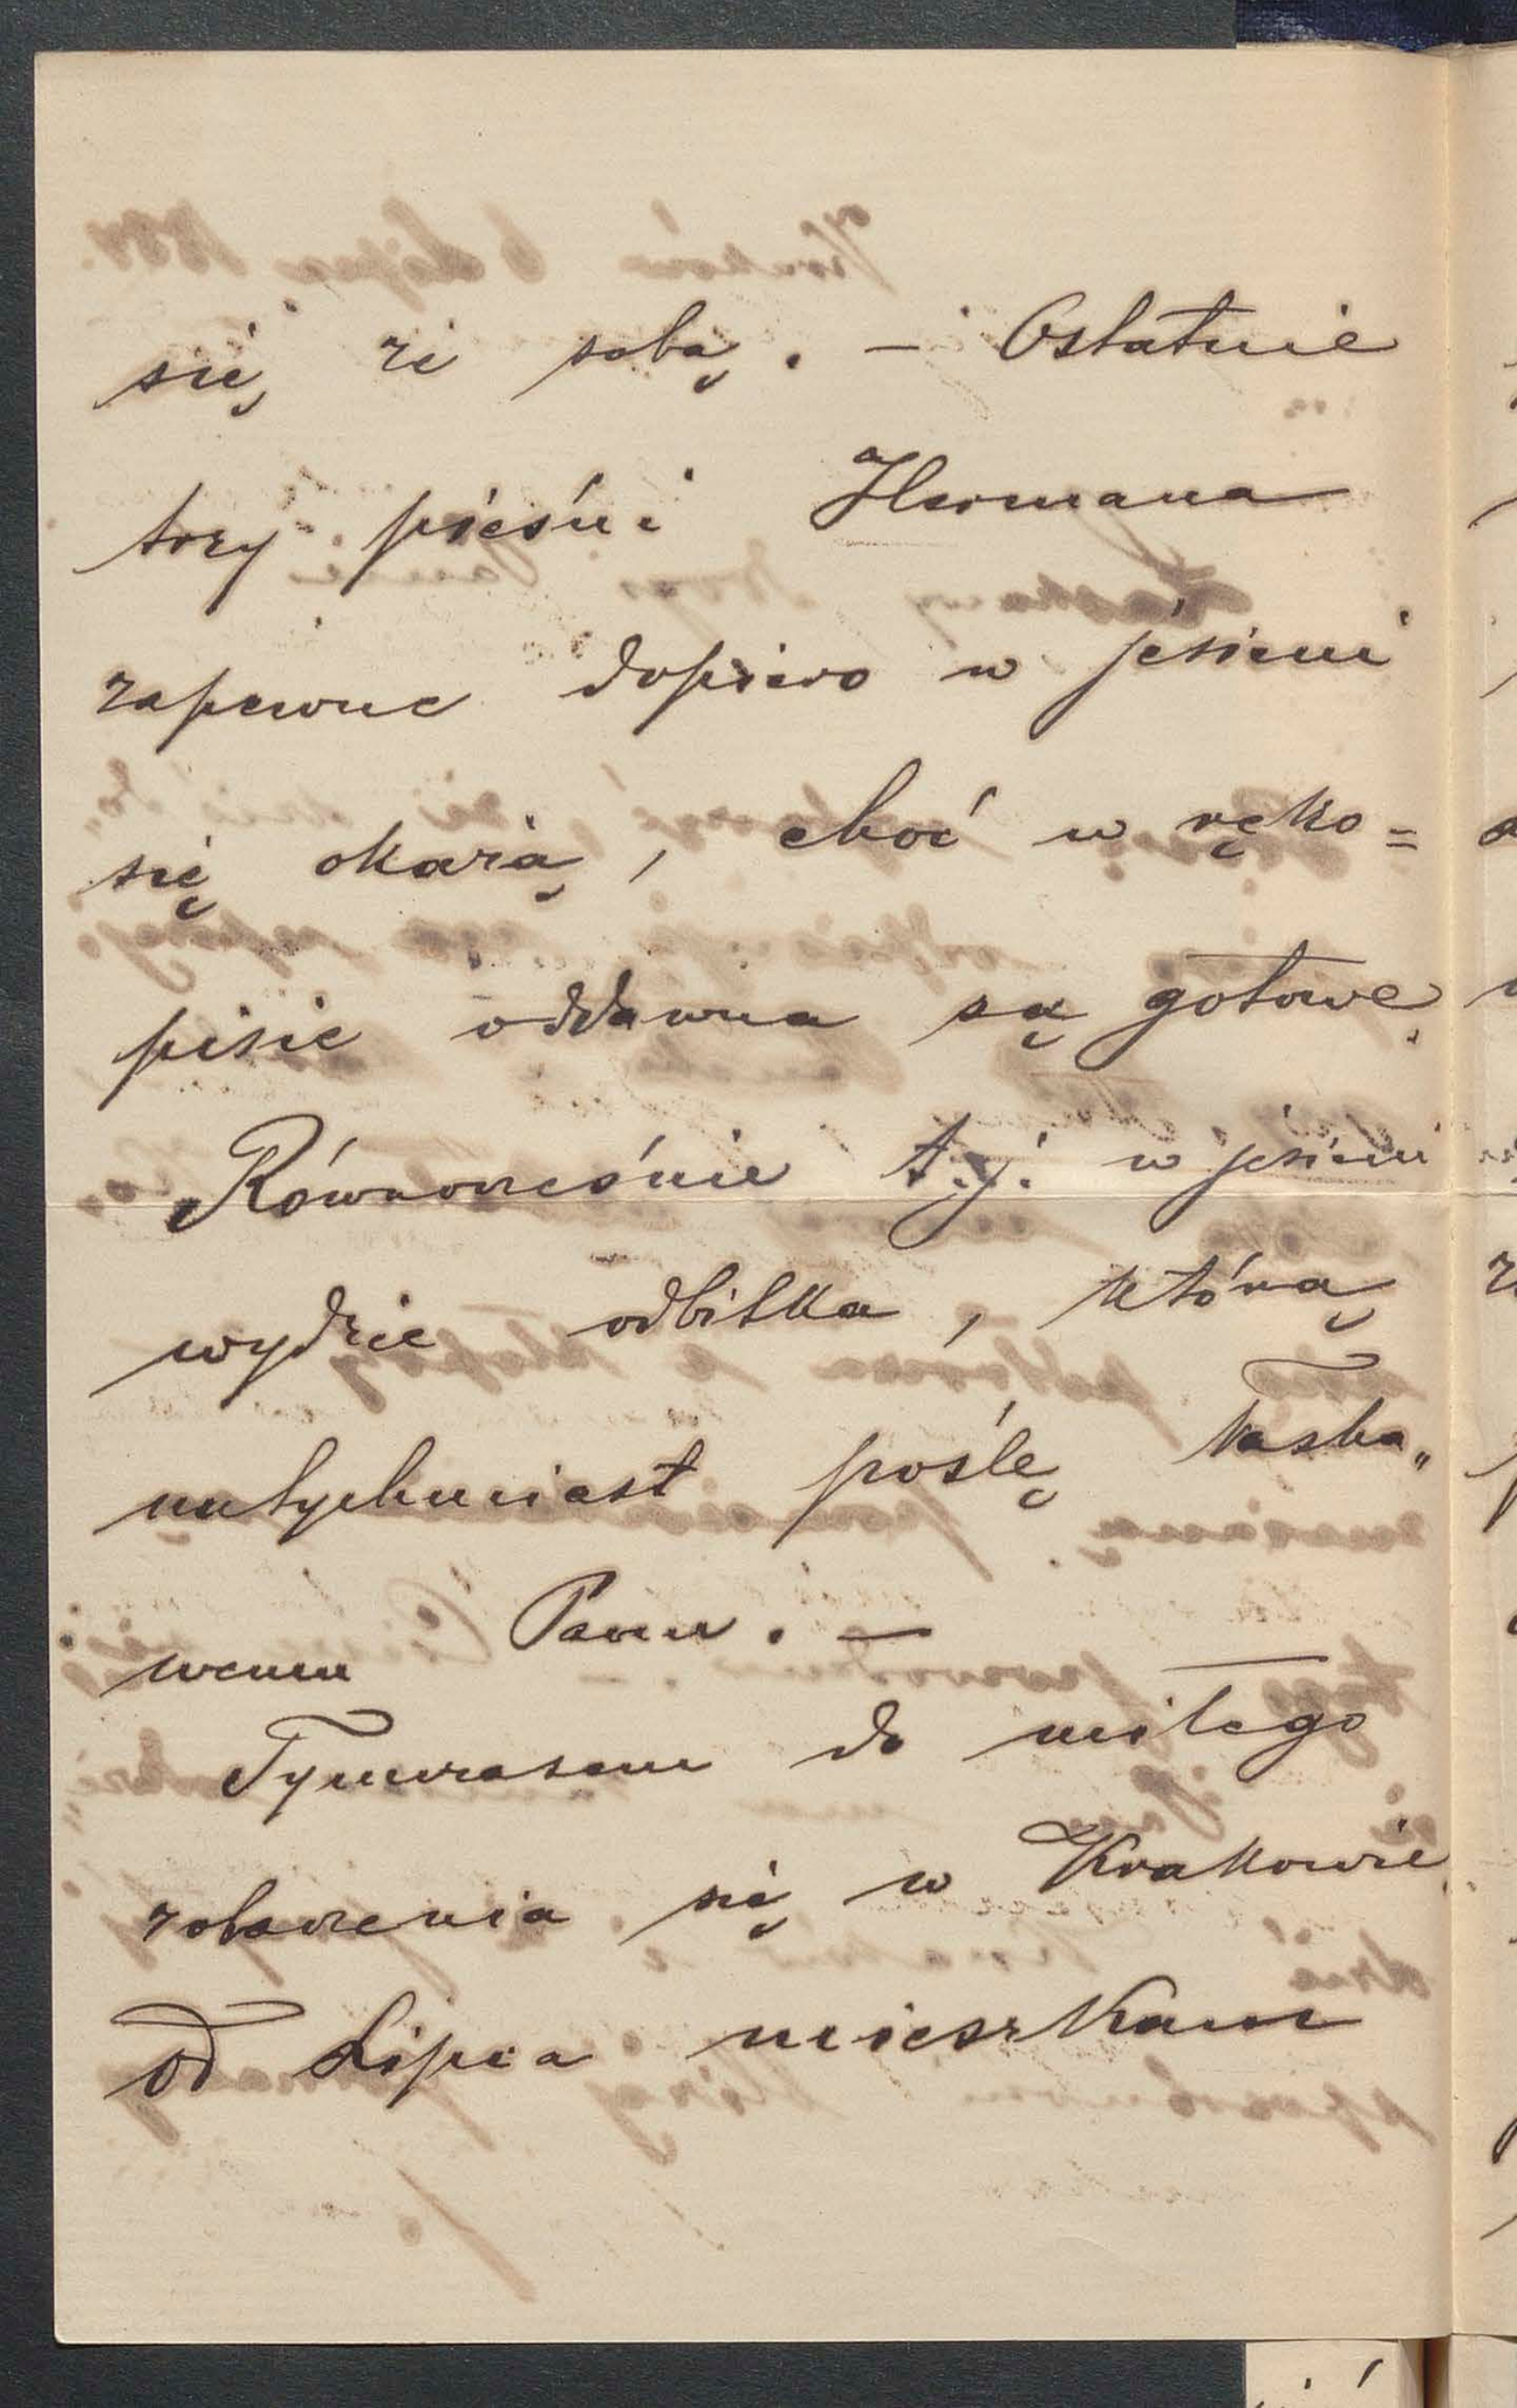 się ze sobą. — Ostatnie
trzy pieśni Hermana
zapewne dopiero w jesieni
się okażą, choć w ręko=
pisie oddawna są gotowe.
Równocześnie t.j. w jesieni
wydzie odbitka, którą
natychmiast poślę łaska„
wemu Panu. —
Tymczasem do miłego
zobaczenia się w Krakowie.
od Lipca mieszkam